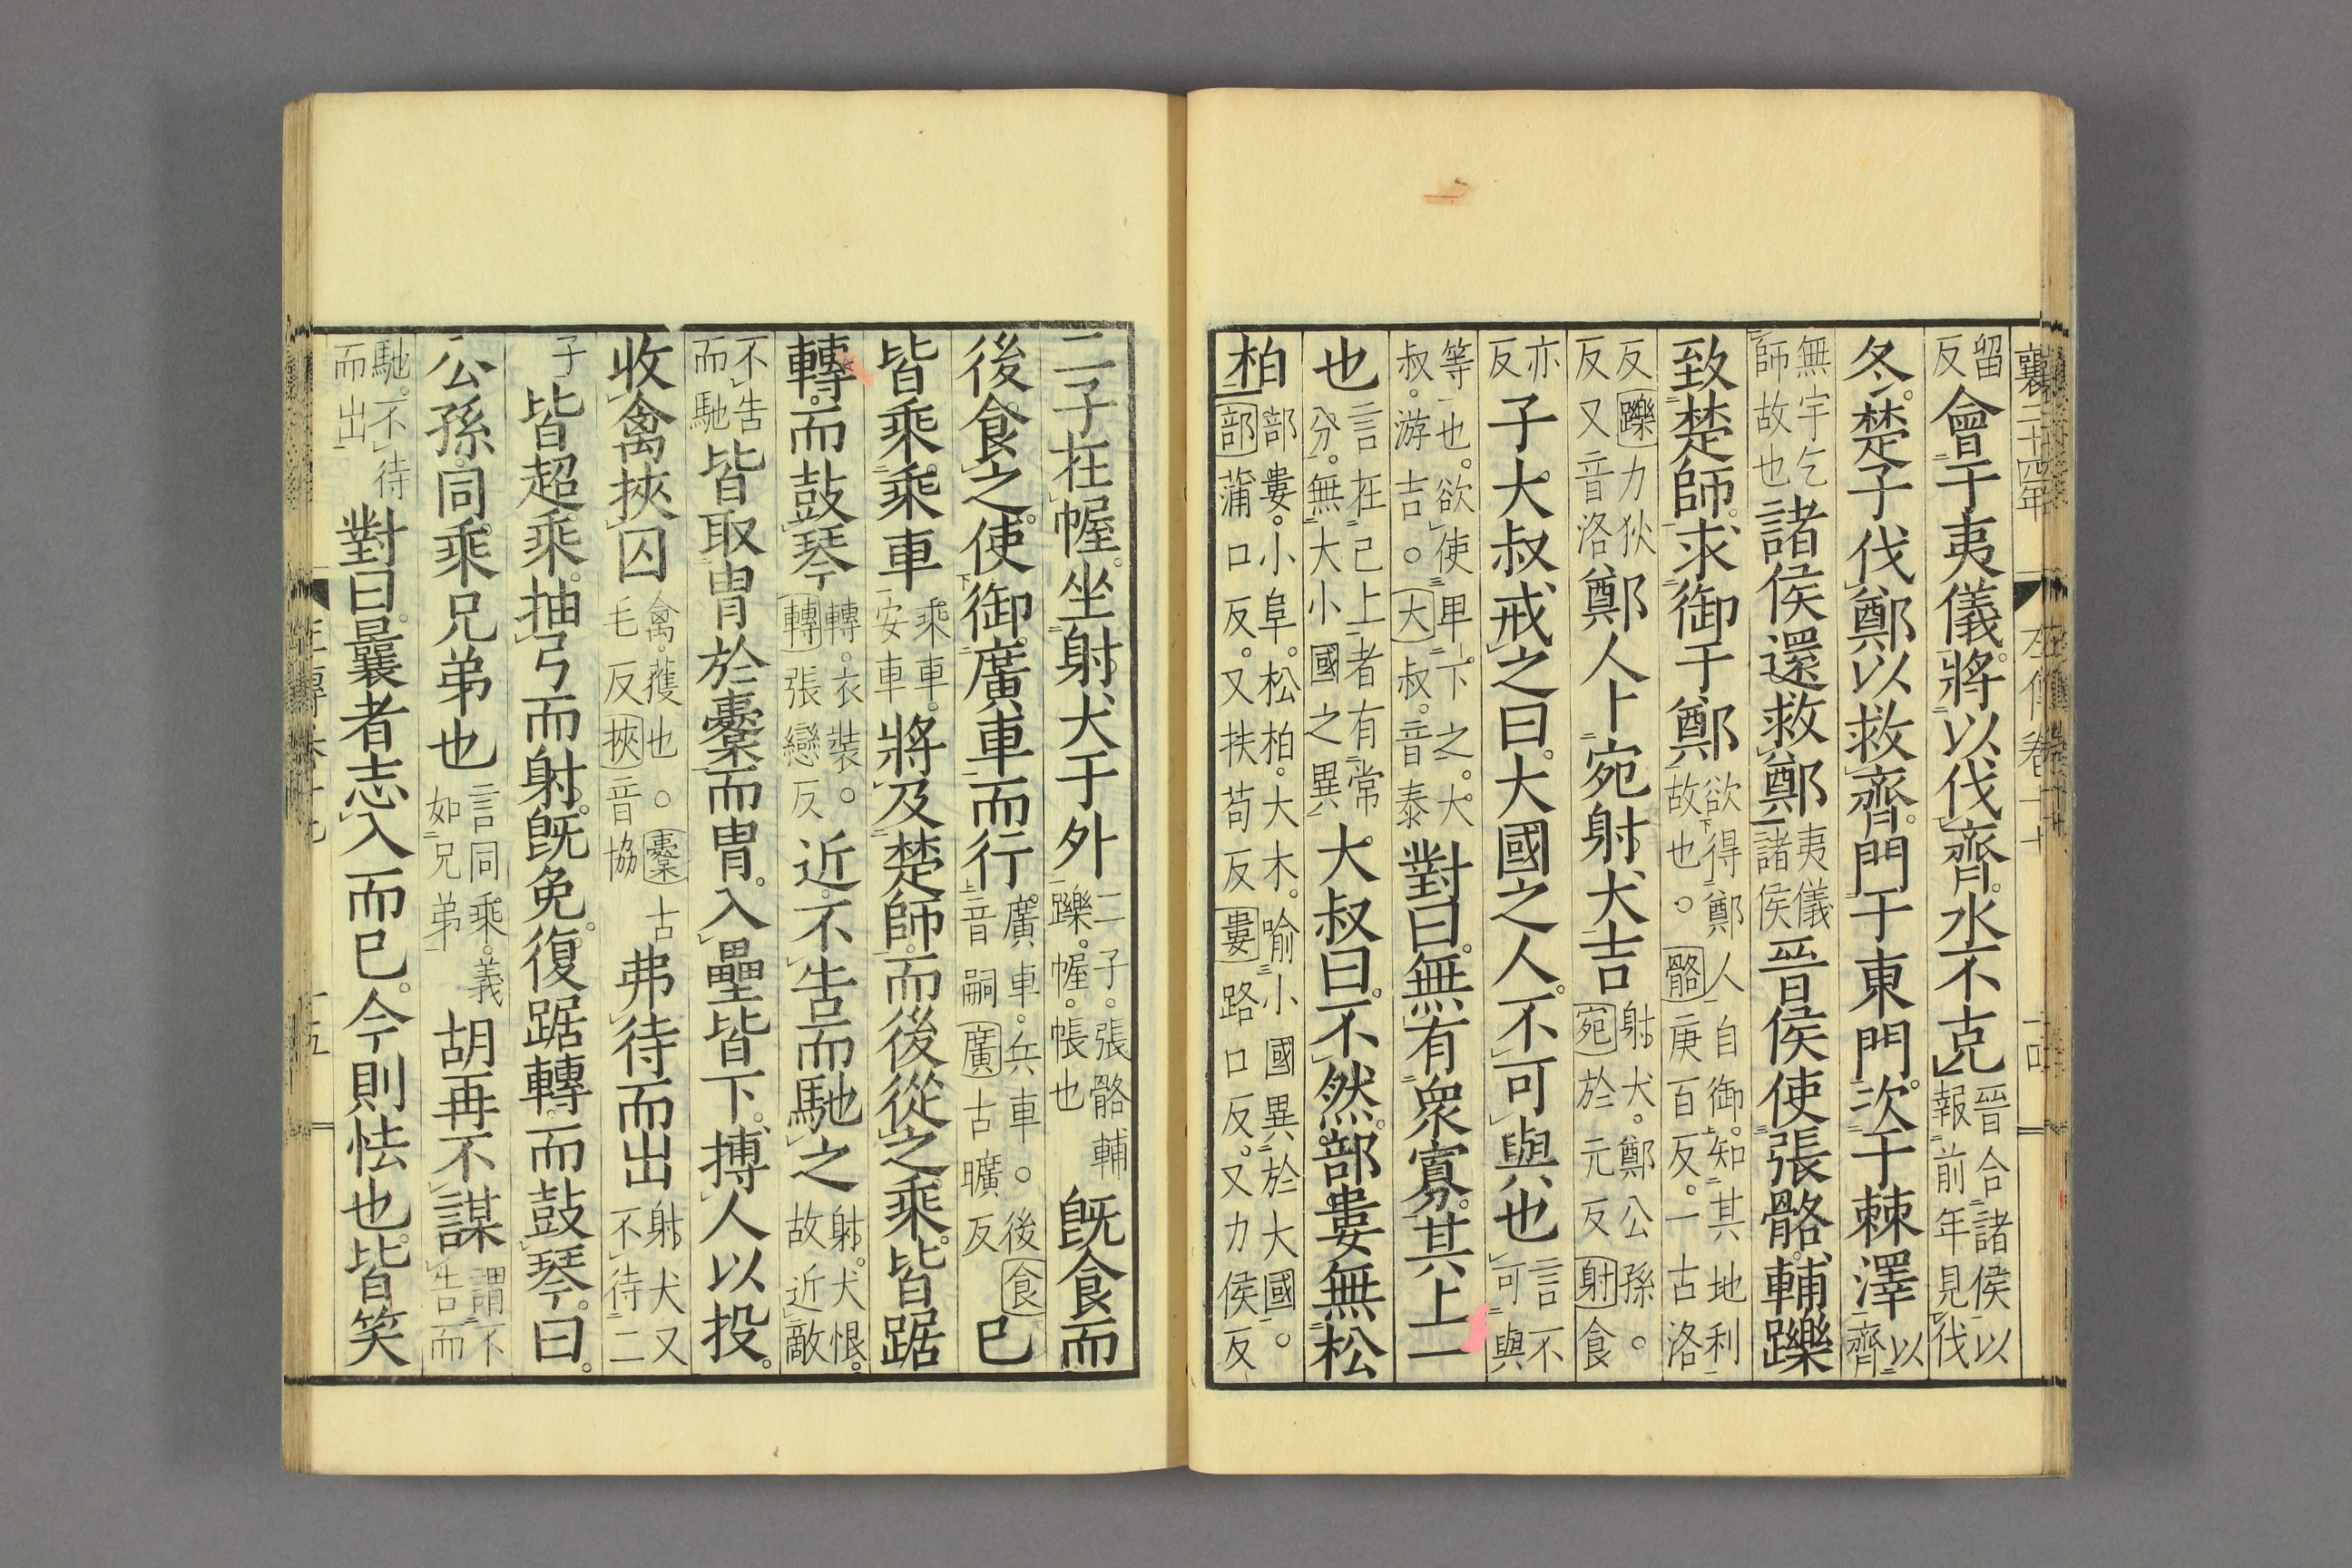 襄二十四年
留反會于夷儀。將以伐齊。水不克晉合諸侯以報前年見伐
冬。楚子伐鄭以救齊。門于東門。次于棘澤以齊
無宇乞師故也諸侯還救鄭夷儀諸侯晉侯使張骼輔躒
致楚師。求御于鄭欲得鄭人自御。知其地利故也。○骼庚百反。一古洛
反躒力狄反又音洛鄭人卜宛射犬吉射犬。鄭公孫。○宛於元反射食
亦反子大叔戒之曰。大國之人。不可與也言不可與
等也。欲使卑下之。大叔。游吉。○大叔。音泰對曰。無有衆寡。其上一
也言在己上者有常分。無大小國之異大叔曰。不然。部婁無松
柏部婁。小阜。松柏。大木。喻小國異於大國。○部蒲口反。又扶苟反婁路口反。又力侯反
二子在幄。坐射犬于外二子。張骼輔躒。幄。帳也既食而
後食之。使御廣車而行。廣車。兵車。○後食音嗣廣古曠反已
皆乘乘車乘車。安車將及楚師。而後從之乘。皆踞
轉。而鼓琴轉。衣裝。○轉張戀反近。不告而馳之射。犬恨。故近敵
不告而馳皆取冑於櫜而冑。入壘皆下。搏人以投。
收禽挾囚禽。獲也。○櫜古毛反挾音協弗待而出射犬又不待二
子皆超乘。抽弓而射。既免。復踞轉。而鼓琴。曰。
公孫。同乘兄弟也言同乘。義如兄弟胡再不謀謂不告而
馳。不待而出對曰。曩者志入而已。今則怯也。皆笑